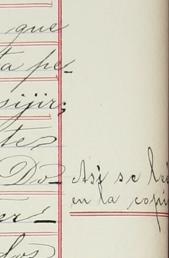 que
ta pe-
sijir;
te
Do-
Así se le
en la copi
er-
dos